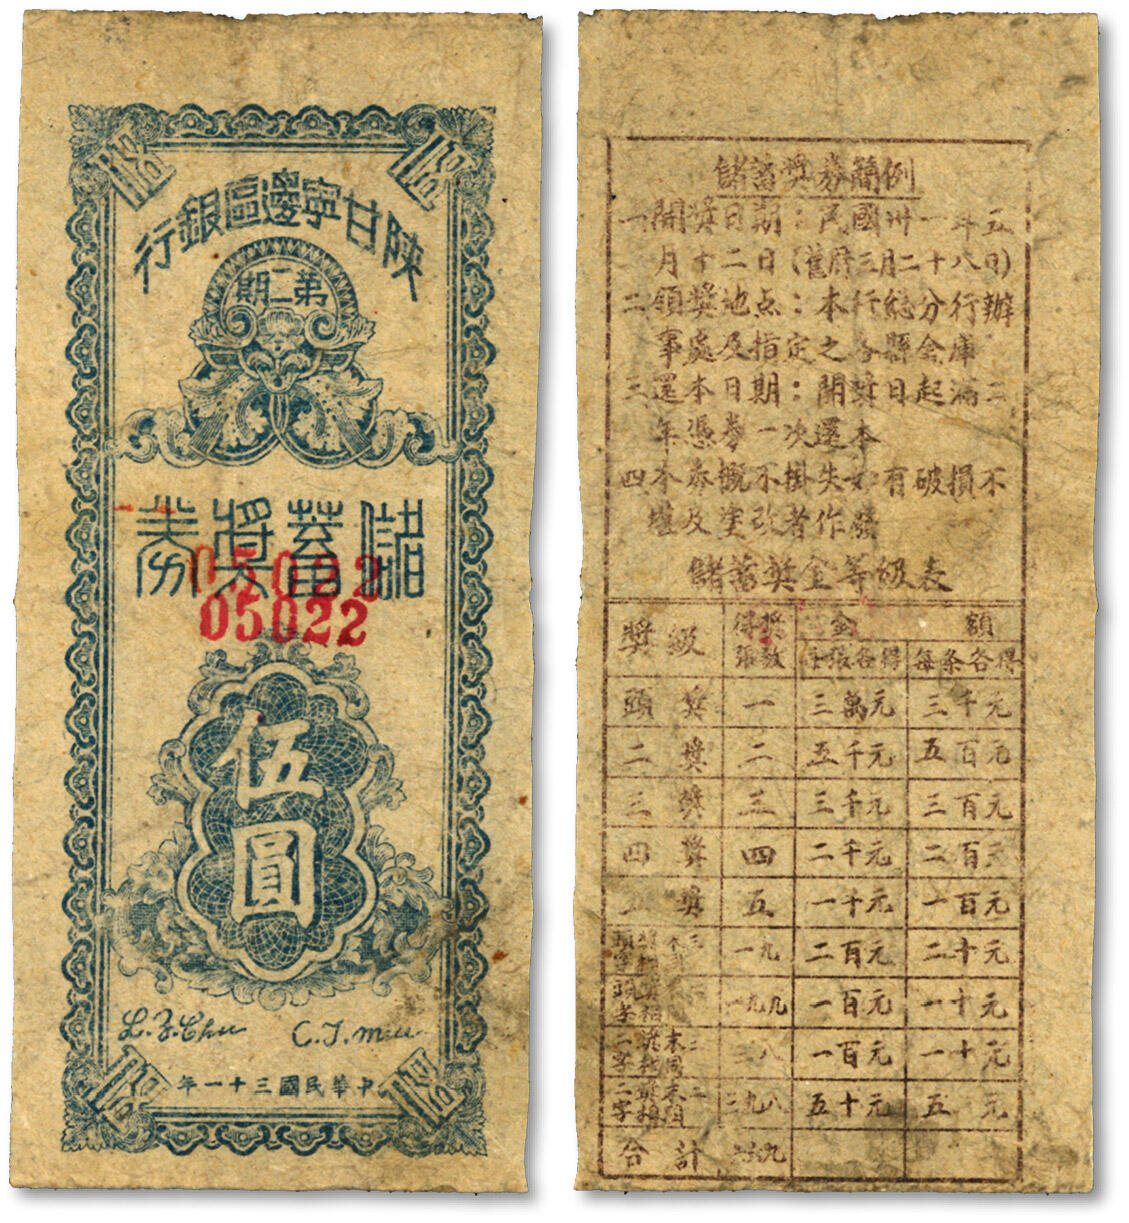 陝甘寧邊區銀行
第二期
儲蓄獎券
05022
05022
伍圓
中華民國三十一年
儲蓄獎券簡例
一 開獎日期：民國卅一年五
月十二日(舊曆三月二十八日)
二 領獎地点：本行總分行辦
事處及指定之各縣金庫
三 還本日期：開獎日起滿二
年憑券一次還本
四 本券概不掛失如有破損不
堪及塗改者作廢
儲蓄獎金等級表
獎級 得獎張數 金額
十張各得 每条各得
頭獎 一 三萬元 三千元
二獎 二 五千元 五百元
三獎 三 三千元 三百元
四獎 四 二千元 二百元
五獎 五 一千元 一百元
一九 二百元 二十元
一九九 一百元 一十元
三八 一百元 一十元
三九八 五十元 五元
合計